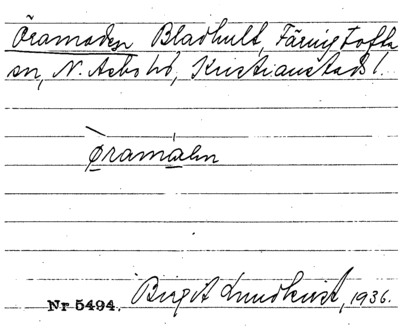 Öramaden Bladhult, Färingtofta
sn, N. Åsbo hd, Kristianstads l.
øramaən
Nr 5494. Birgit Lundkvist, 1936.